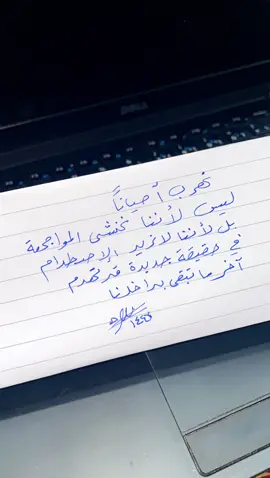 DELL
نهرب أحياناً
ليس لأننا نخشى المواجهة
بل لأننا لا نريد الاصطدام
في حقيقة جديدة قد تهدم
آخر ما تبقى بداخلنا